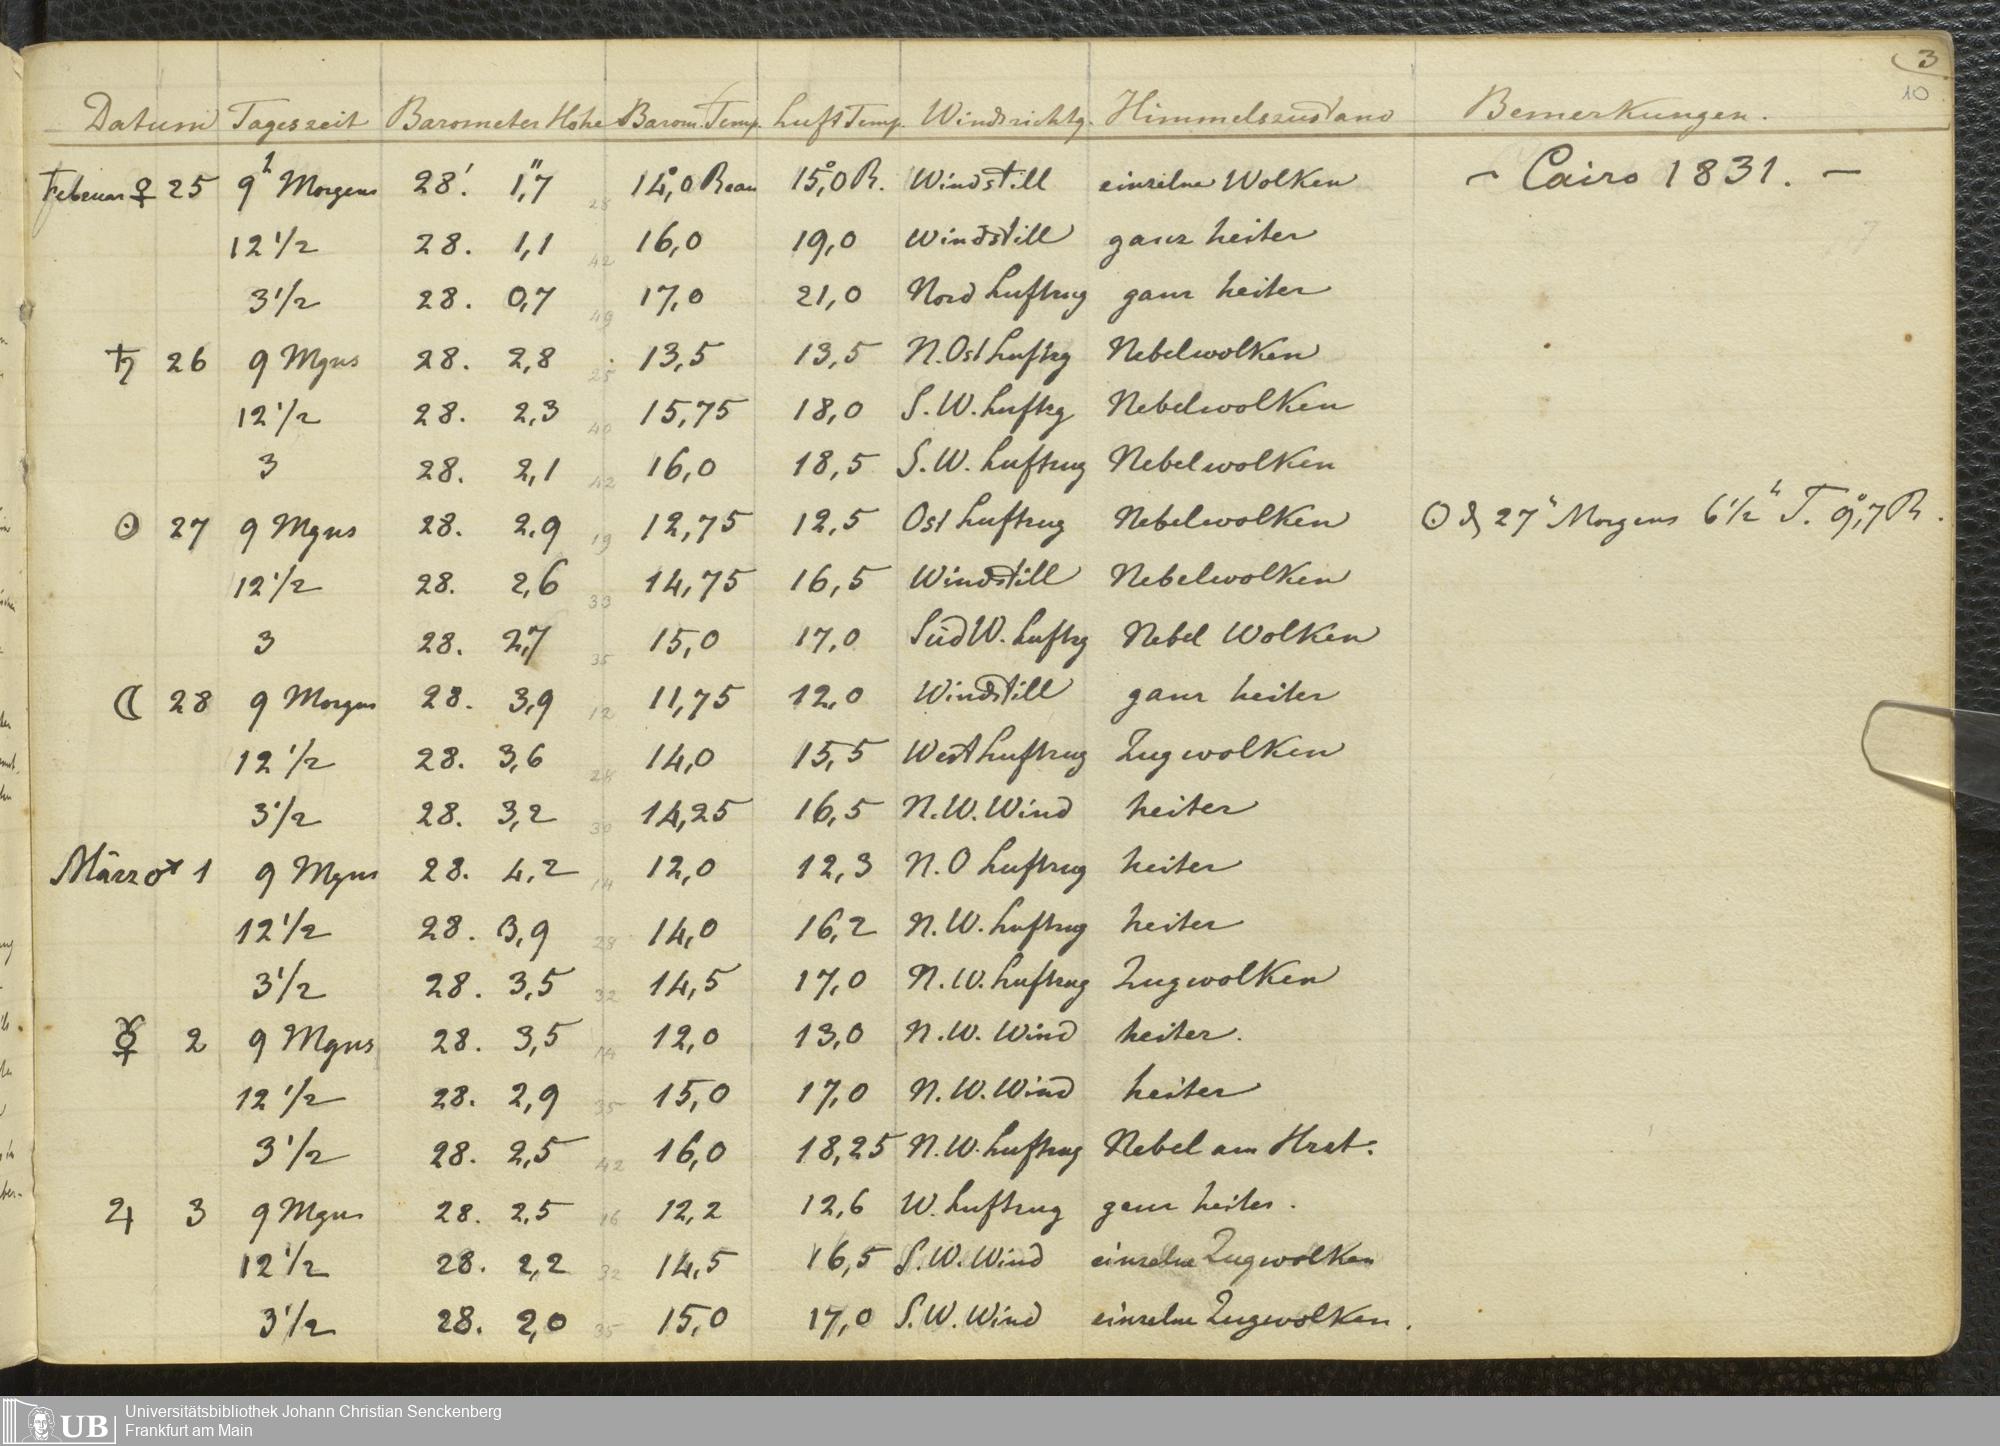 3
10
Datum Tageszeit Barometer Höhe Barom. Temp. Luft Temp. Windrichtg. Himmelszustand Bemerkungen.
Februar ♀ 25 9h Morgens 28.' 1,"7 28 14,°0 Reau 15,°0 R. Windstill einzelne Wolken - Cairo 1831. -
12 1/2 28. 1,1 42 16,0 19,0 Windstill ganz heiter
3 1/2 28. 0,7 49 17,0 21,0 Nord Luftzug ganz heiter
♄ 26 9 Mgns 28. 2,8 25 13,5 13,5 N. Ost Luftzg Nebelwolken
12 1/2 28. 2,3 40 15,75 18,0 S. W. Luftzg Nebelwolken
3 28. 2,1 42 16,0 18,5 S. W. Luftzug Nebelwolken
☉ 27 9 Mgns 28. 2,9 19 12,75 12,5 Ost Luftzug Nebelwolken ☉ 27 Morgens 6 1/2 h T. 9,°7 R.
12 1/2 28. 2,6 33 14,75 16,5 Windstill Nebelwolken
3 28. 2,7 35 15,0 17,0 Süd W. Luftzg Nebel Wolken
☾ 28 9 Morgns 28. 3,9 12 11,75 12,0 Windstill ganz heiter
12 1/2 28. 3,6 28 14,0 15,5 West Luftzug Zugwolken
3 1/2 28. 3,2 30 14,25 16,5 N. W. Wind heiter
März ♂ 1 9 Mgns 28. 4,2 14 12,0 12,3 N. O Luftzug heiter
12 1/2 28. 3,9 28 14,0 16,2 N. W. Luftzug heiter
3 1/2 28. 3,5 32 14,5 17,0 N. W. Luftzug Zugwolken
☿ 2 9 Mgns 28. 3,5 14 12,0 13,0 N. W. Wind heiter.
12 1/2 28. 2,9 35 15,0 17,0 N. W. Wind heiter
3 1/2 28. 2,5 42 16,0 18,25 N. W. Luftzug Nebel am Hrzt.
♃ 3 9 Mgns 28. 2,5 16 12,2 12,6 W. Luftzug ganz heiter.
12 1/2 28. 2,2 32 14,5 16,5 S. W. Wind einzelne Zugwolken
3 1/2 28. 2,0 35 15,0 17,0 S. W. Wind einzelne Zugwolken.
UB
Universitätsbibliothek Johann Christian Senckenberg
Frankfurt am Main